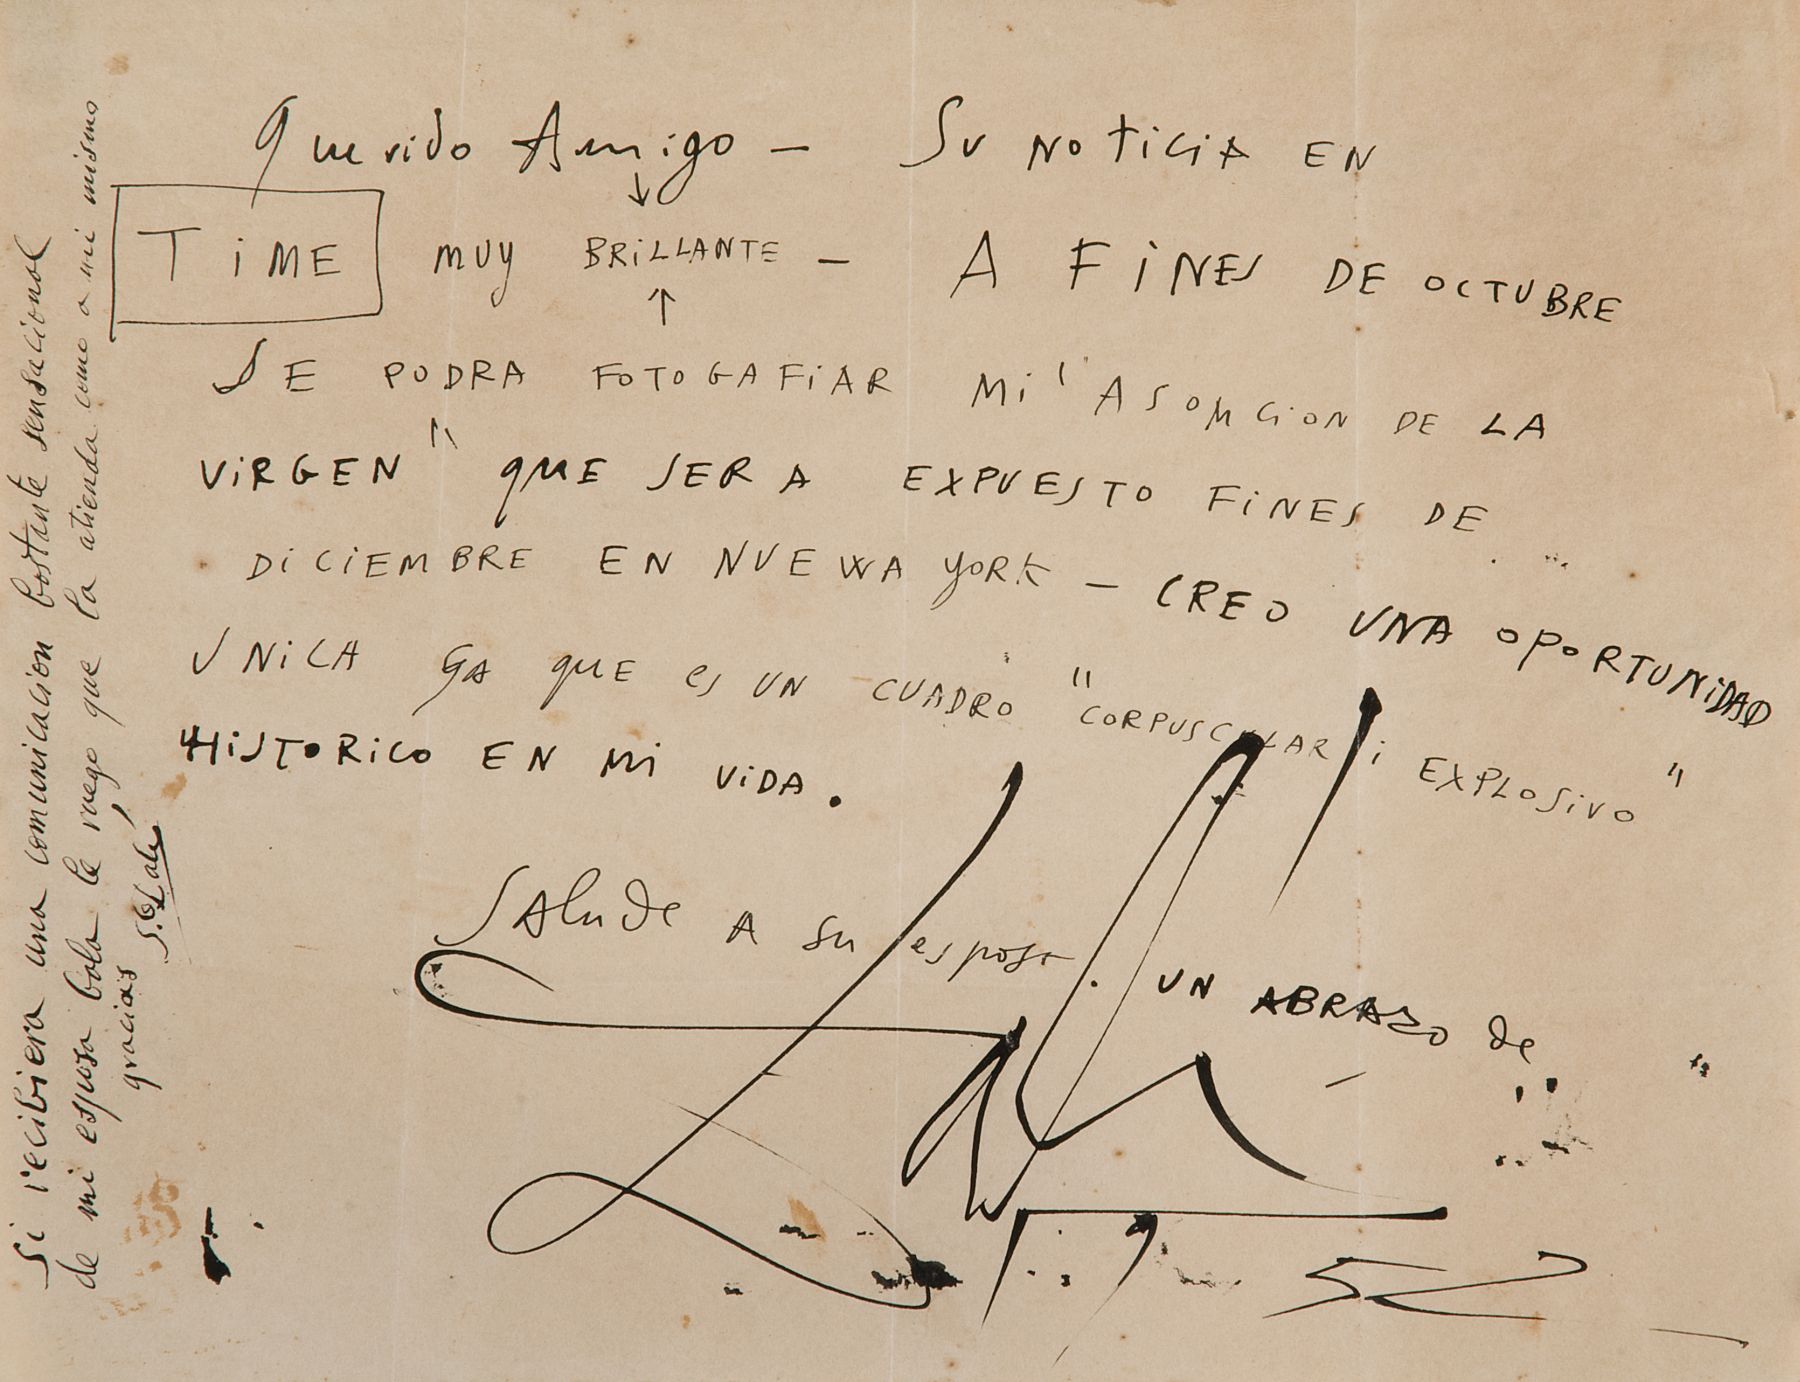 Querido Amigo – Su NOTICIA EN
TiME MUY BRiLLANTE – A FiNES DE OCTUBRE
SE PODRA FOTOGAFiAR Mi "ASOMCiON DE LA
ViRGEN" QUE SERA EXPUESTO FiNES DE
DiCiEMBRE EN NUEWA YORK – CREO UNA OPORTUNiDAD
UNiCA GA QUE es UN CUADRO "CORPUSCULAR i EXPLOSiVO"
HiSTORiCO EN Mi ViDA.
SAlude A su esposa. UN ABRAZO de
Dalí
1952
Si recibiera una comunicacion bastante sensacional
de mi esposa Gala le ruego que la atienda como a mi mismo
gracias S. Dalí